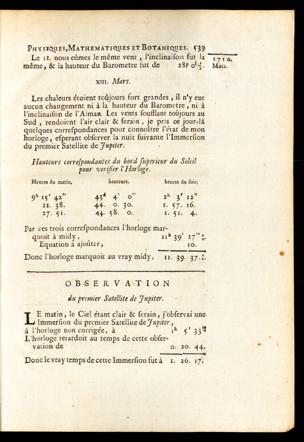 PHYSIQUES, MATHEMATIQUES ET BOTANIQUES. 539
Le 11. nous eûmes le même vent, l'inclinaison fut la
1710.
Mars.
même, & la hauteur du Barometre fut de 28P 0l
XIII. Mars.
Les chaleurs étoient toûjours fort grandes, il n'y eut
aucun changement ni à la hauteur du Barometre, ni à
l'inclinaison de l'Aiman. Les vents soufflant toûjours au
Sud, rendoient l'air clair & serain, je pris ce jour-là
quelques correspondances pour connoître l'état de mon
horloge, esperant observer la nuit suivante l'Immersion
du premier Satellite de Jupiter.
Hauteurs correspondantes du bord superieur du Soleil
pour verifier l'Horloge.
Heures du matin, hauteurs. heures du soir;
9h 15' 42" 43d 4' 0" 2h 3' 12"
21. 38. 44. 0. 30. 1. 57. 16.
27. 51. 44. 58. 0. 1. 51. 4.
Par ces trois correspondances l'horloge mar-
quoit à midy. 11h 39' 27"
Equation à ajoûter, 10.
Donc l'horloge marquoit au vray midy. 11. 39. 37.
OBSERVATION
du premier Satellite de Jupiter.
LE matin, le Ciel étant clair & serain, j'observai une
Immersion du premier Satellite de Jupiter,
à l'horloge non corrigée, à 1h 5' 33"
L'horloge retardoit au temps de cette obser-
vation de 0. 20. 44.
Donc le vray temps de cette Immersion fut à 1. 26. 17.